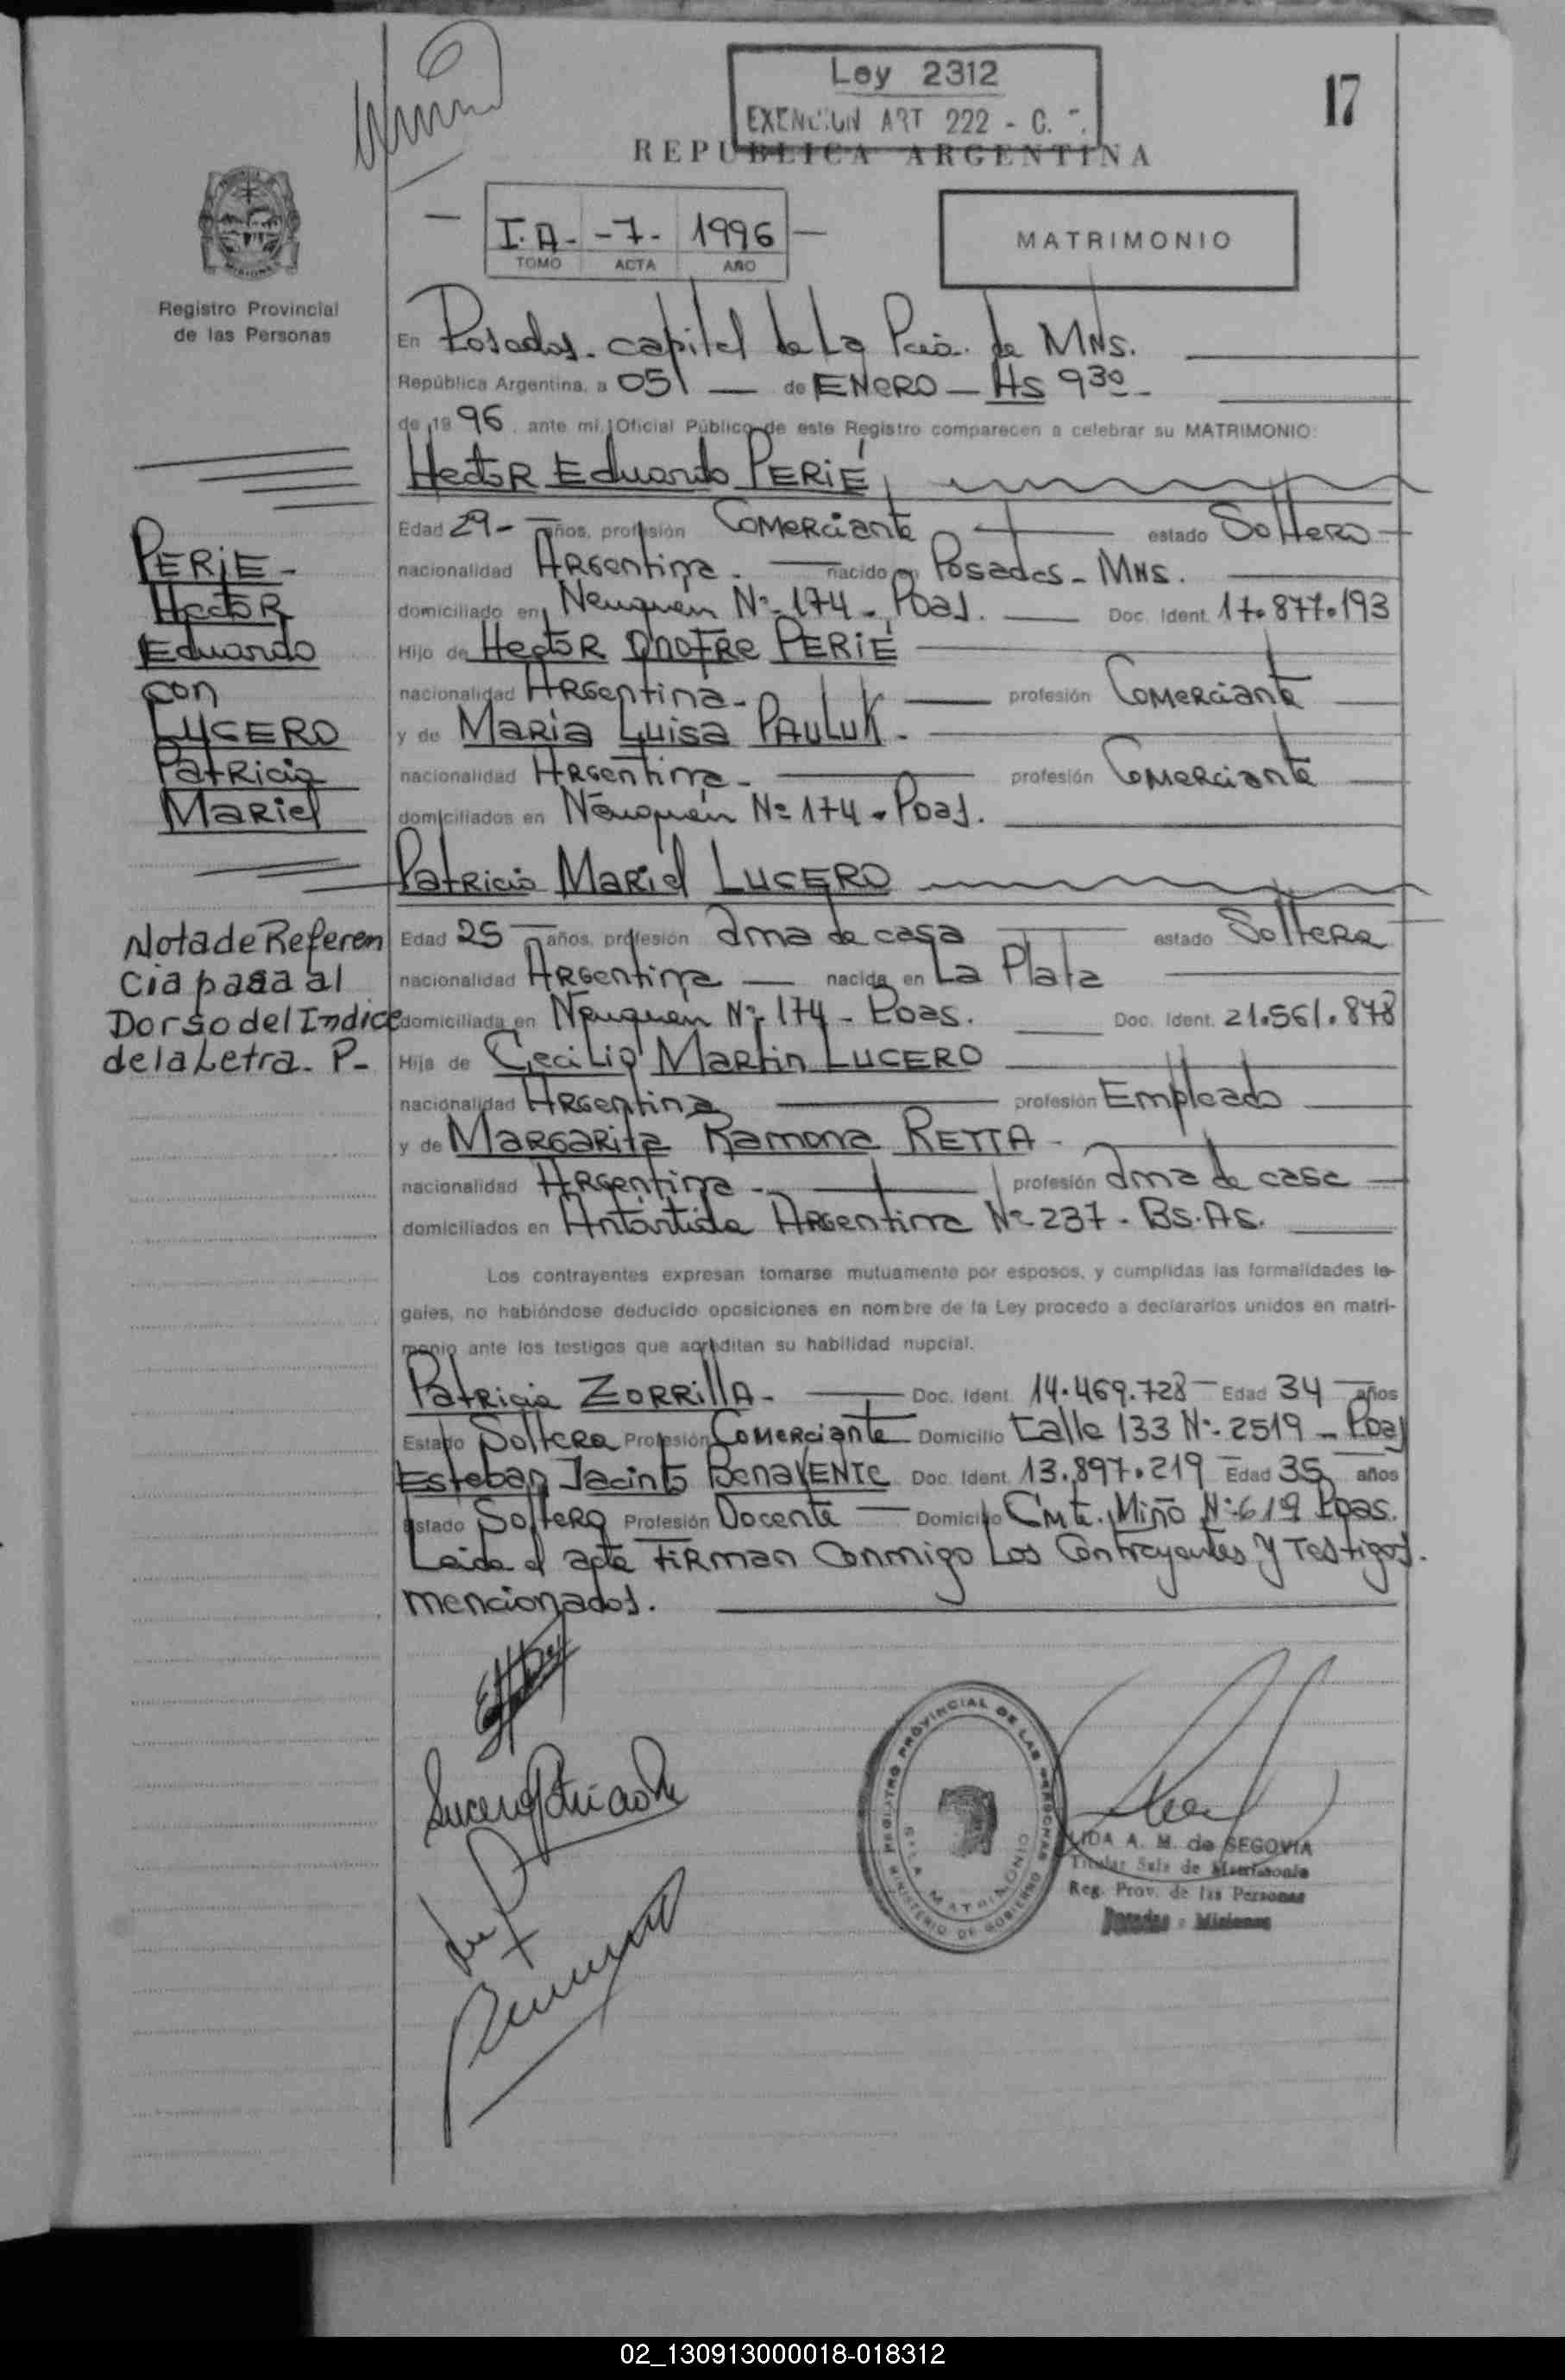 Ley 2312
EXENCION ART 222 - C.
17
REPUBLICA ARGENTINA
I.A- -7- 1996
TOMO ACTA AÑO
MATRIMONIO
Registro Provincial
de las Personas
En Posadas. capital de La Pcia. de MNS.
República Argentina, a 05 de ENERO - HS 9 30 -
de 19 96, ante mí, Oficial Público de este Registro comparecen a celebrar su MATRIMONIO:
Hector Eduardo PERIÉ
Edad 29- años, profesión Comerciante estado Soltero
nacionalidad Argentina. nacido en Posadas - MNS.
domiciliado en Neuquén Nº 174 - Pdas. Doc. Ident. 17.877.193
Hijo de Hector Onofre PERIÉ
nacionalidad Argentina - profesión Comerciante
y de Maria Luisa PAULUK -
nacionalidad Argentina - profesión Comerciante
domiciliados en Neuquén Nº 174 - Pdas.
Patricia Mariel LUCERO
Edad 25 años, profesión Ama de casa estado Soltera
nacionalidad Argentina nacida en La Plata
domiciliada en Neuquen Nº 174 - Pdas. Doc. Ident. 21.561.878
Hija de Cecilio Martin LUCERO
nacionalidad Argentina profesión Empleado
y de Margarita Ramona RETTA -
nacionalidad Argentina - profesión Ama de casa
domiciliados en Antártida Argentina Nº 237 - BS.AS.
Los contrayentes expresan tomarse mutuamente por esposos, y cumplidas las formalidades le-
gales, no habiéndose deducido oposiciones en nombre de la Ley procedo a declararlos unidos en matri-
monio ante los testigos que acreditan su habilidad nupcial.
Patricia ZORRILLA - Doc. Ident. 14.469.728 Edad 34 años
Estado Soltera Profesión Comerciante Domicilio Calle 133 Nº 2519 - Pdas
Esteban Jacinto Benavente Doc. Ident. 13.897.219 Edad 35 años
Estado Soltero Profesión Docente Domicilio Cmte. Miño Nº 619 Pdas.
Leida el acta firman conmigo los contrayentes y Testigos.
mencionados.
PERIE -
Hector
Eduardo
con
LUCERO
Patricia
Mariel
Nota de Referen
cia pasa al
Dorso del Indice
de la Letra - P-
Lucero Patricia M
REGISTRO PROVINCIAL DE LAS PERSONAS
MINISTERIO DE GOBIERNO
SALA MATRIMONIO
LIDA A. M. de SEGOVIA
Titular Sala de Matrimonio
Reg. Prov. de las Personas
Posadas - Misiones
02_130913000018-018312